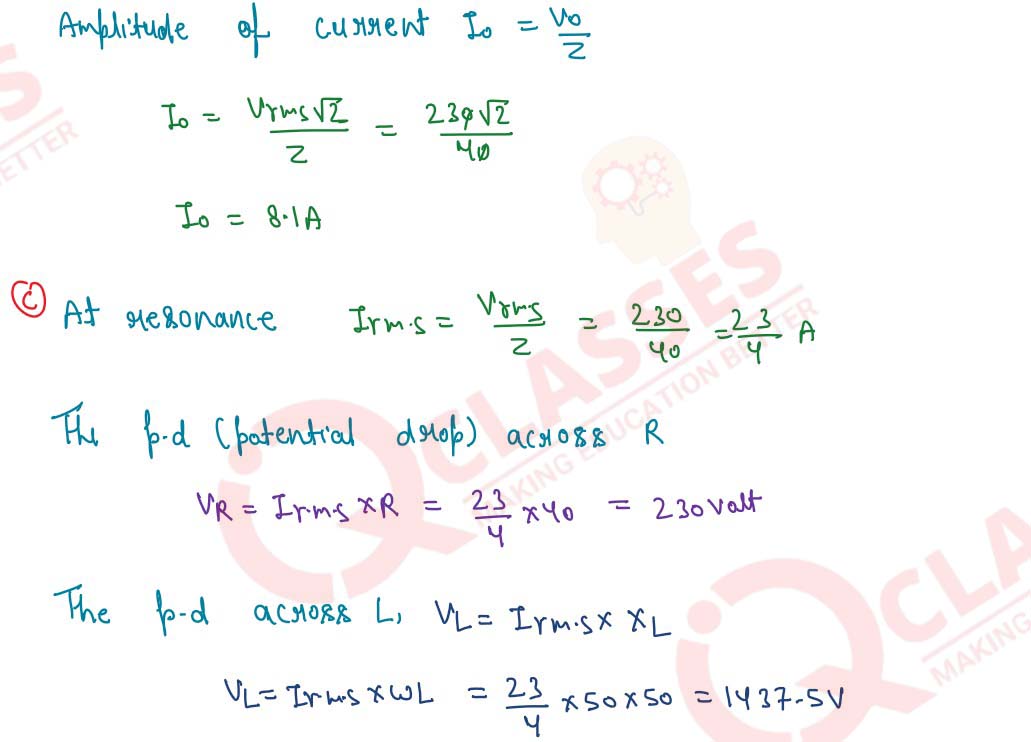 Amplitude of current I₀ = V₀/Z
I₀ = Vrms√2/Z = 230√2/40
I₀ = 8.1A
(C) At resonance Ir.m.s = Vrms/Z = 230/40 = 23/4 A
The p.d (potential drop) across R
VR = Ir.m.s × R = 23/4 × 40 = 230 Volt
The p-d across L, VL = Irm.s × XL
VL = Irm.s × ωL = 23/4 × 50 × 50 = 1437.5V
CLASSES
MAKING EDUCATION BETTER
QCLA
MAKING
S
ETTER